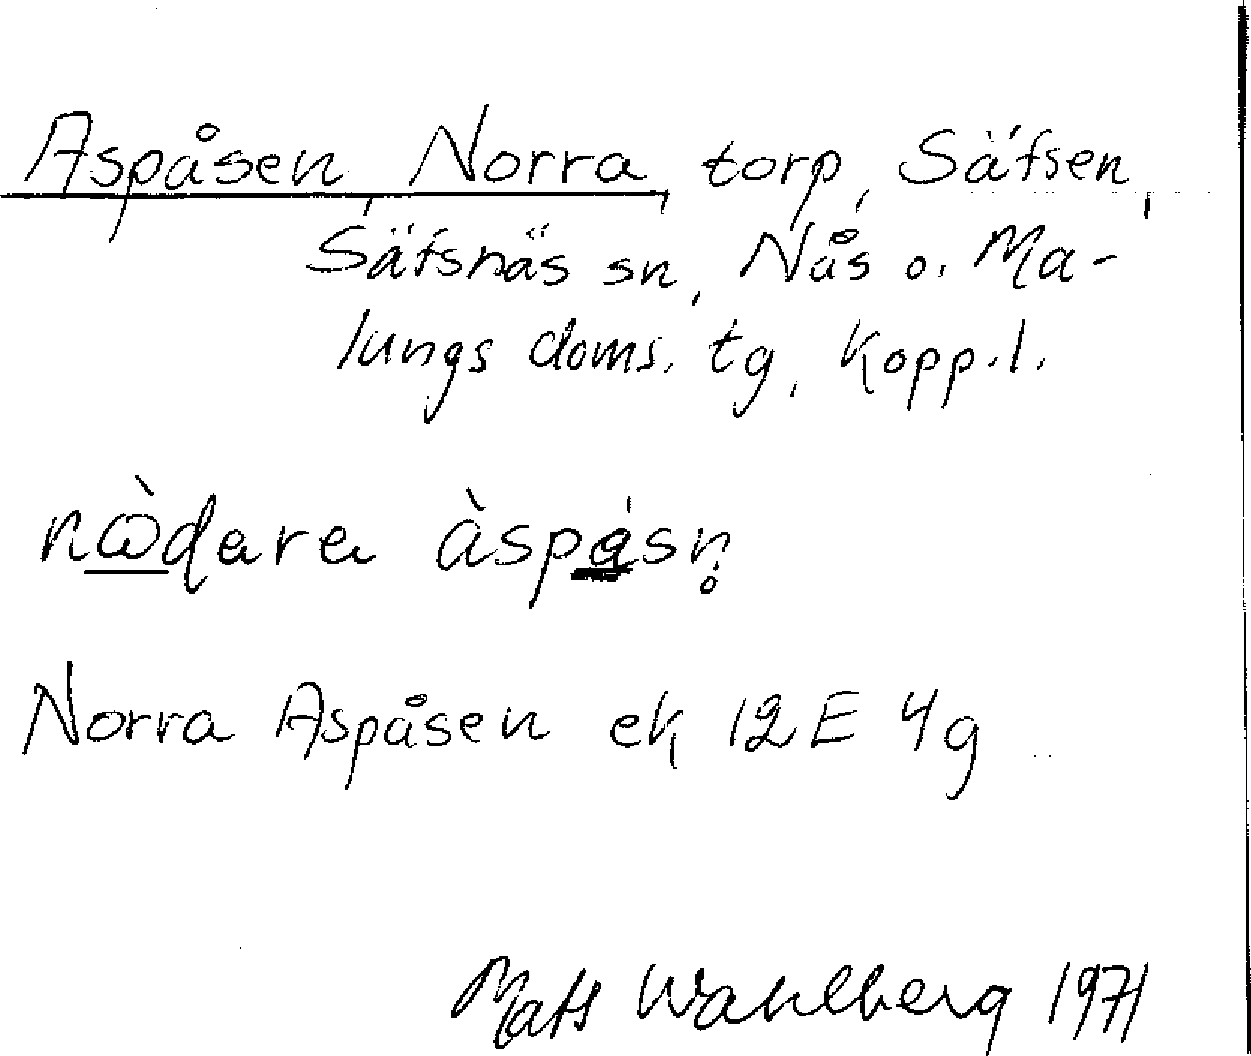 Aspåsen, Norra, torp, Säfsen,
Säfsnäs sn, Nås o. Ma-
lungs doms. tg, Kopp. l.
Norra Aspåsen ek 12E 4g
Mats Wahlberg 1971